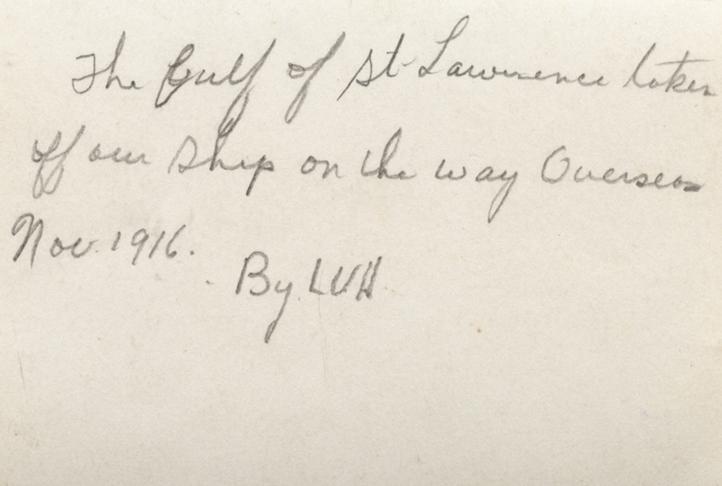 The Gulf of St Lawrence taken
off our ship on the way Overseas
Nov. 1916.
By LVH